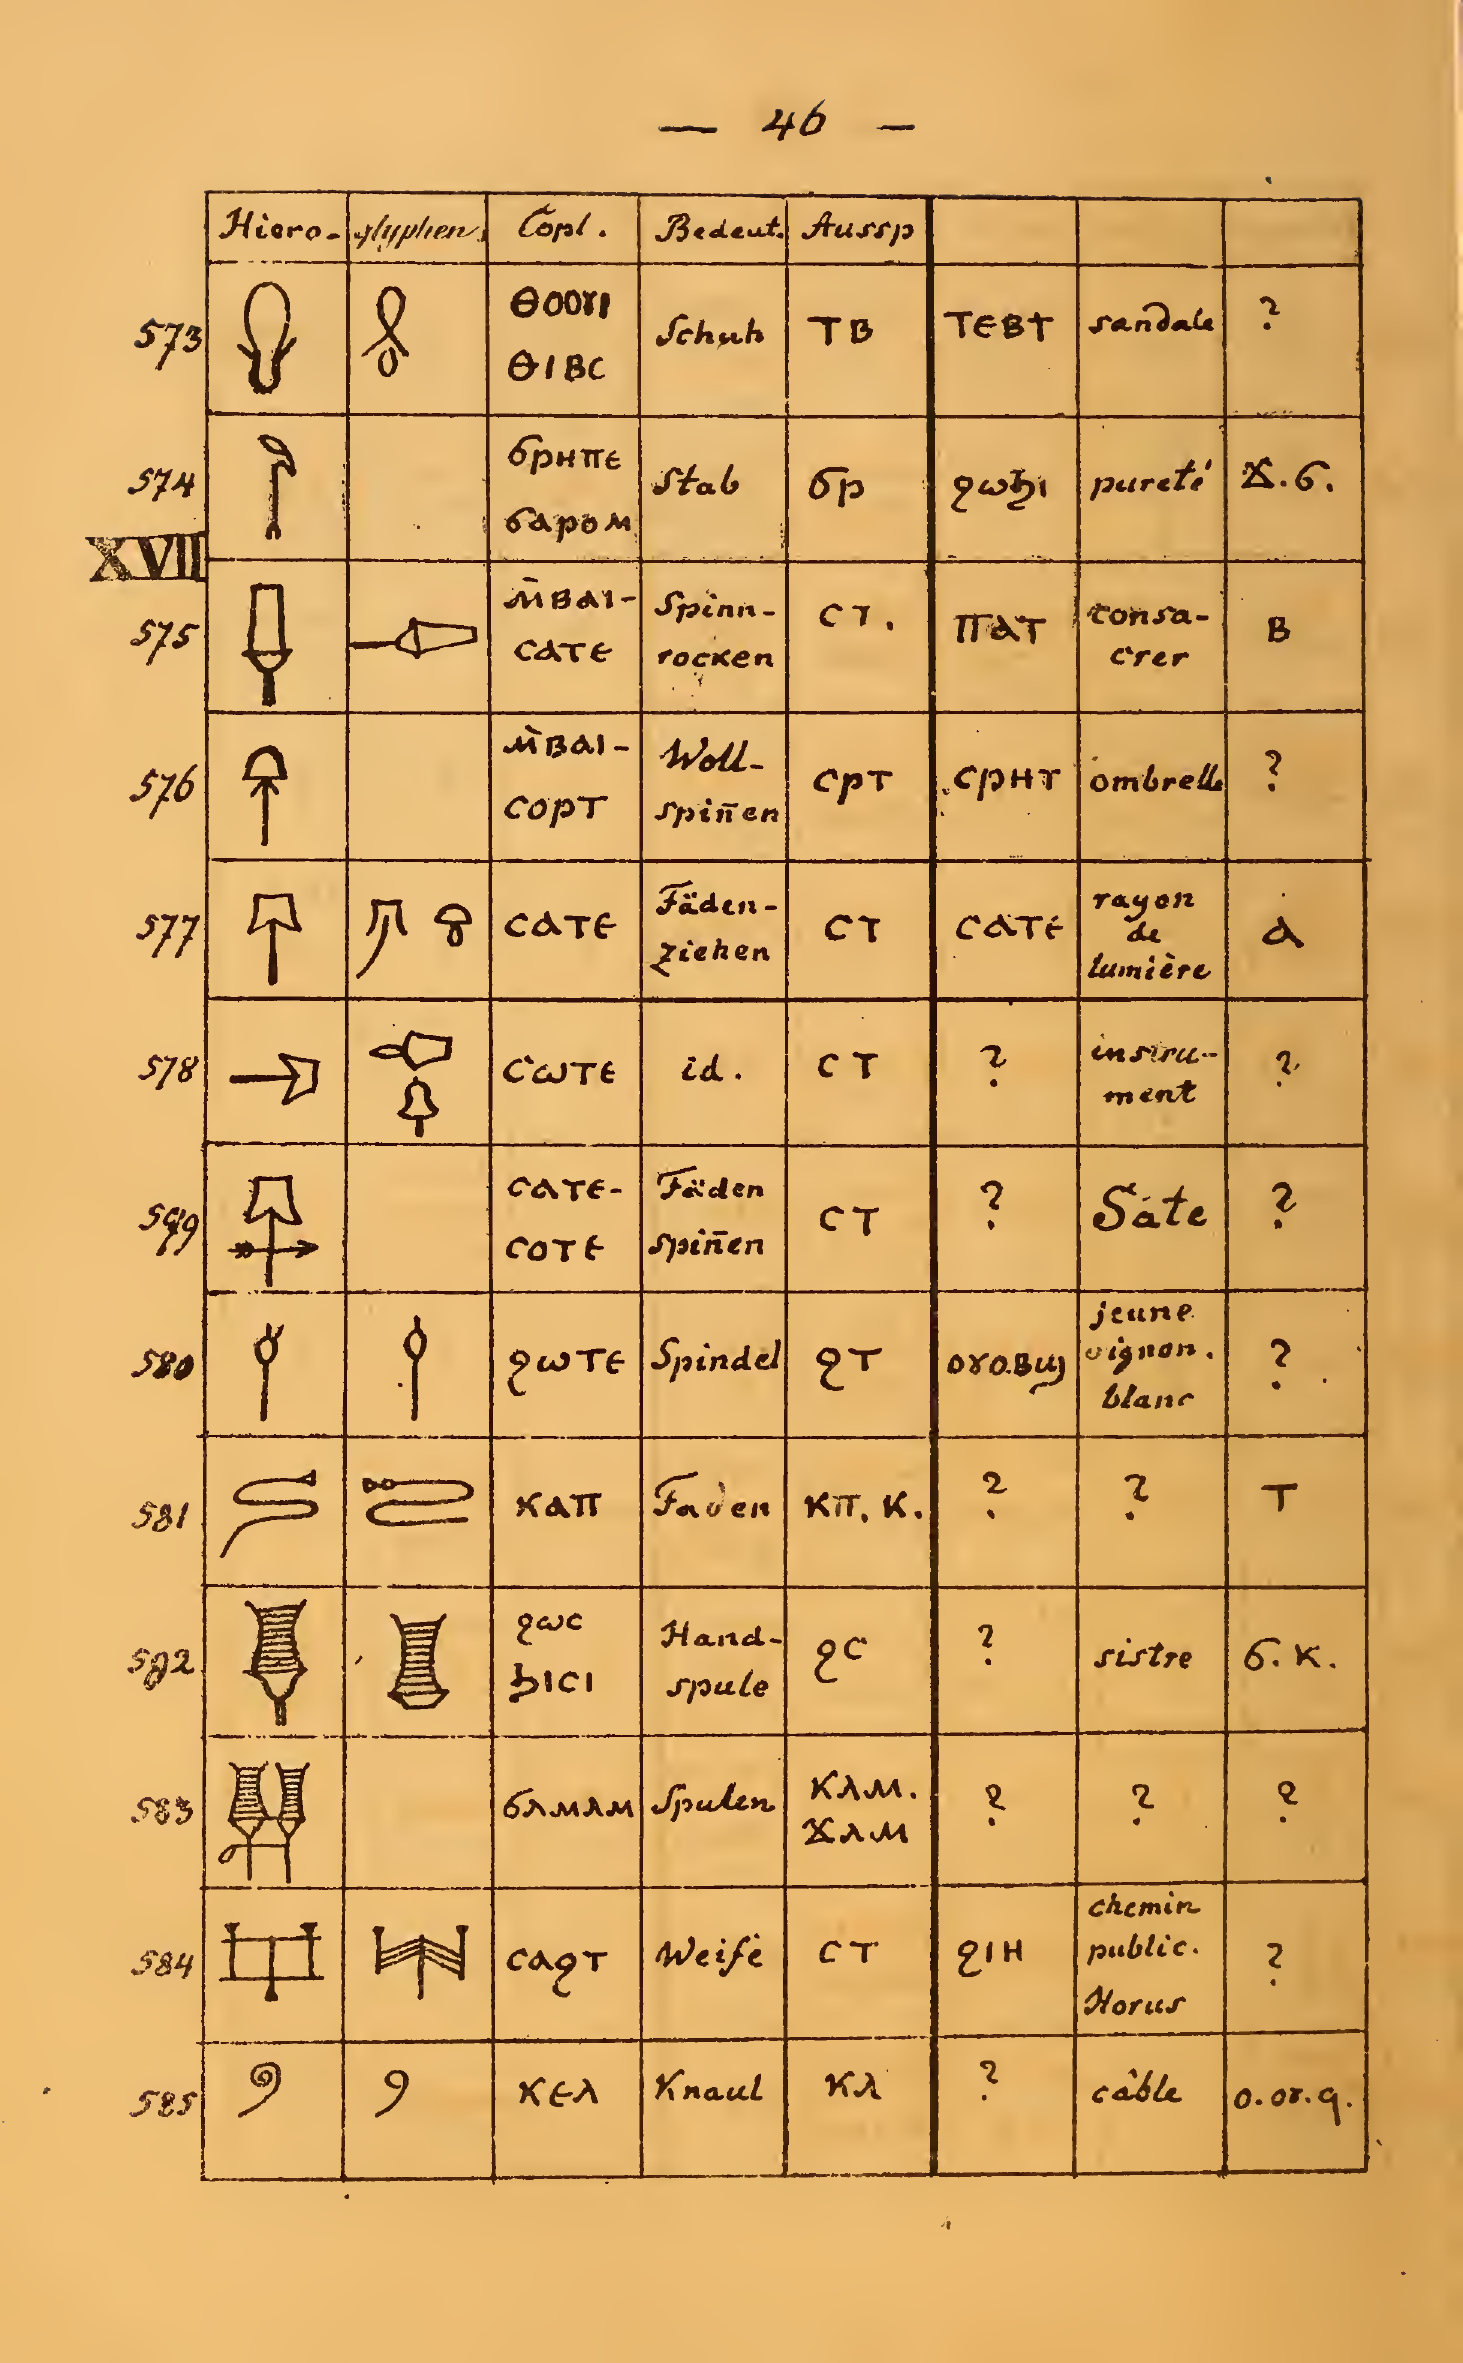 — 46 —
Hiero- glyphen. Copt. Bedeut. Aussp
573 ⲑⲟⲟⲩⲓ ⲑⲓⲃⲥ Schuh ⲧⲃ ⲧⲉⲃⲧ sandale ?
574 ϭⲣⲏⲡⲉ ϭⲁⲣⲟⲙ Stab ϭⲣ ϩⲱϧⲓ pureté ϫ.ϭ.
XVII
575 ⲙ̄ⲃⲁⲓ- ⲥⲁⲧⲉ Spinn- rocken ⲥⲧ. ⲡⲁⲧ consa- crer ⲃ
576 ⲙ̄ⲃⲁⲓ- ⲥⲟⲣⲧ Woll- spin̄en ⲥⲣⲧ ⲥⲣⲏⲧ ombrelle ?
577 ⲥⲁⲧⲉ Fäden- ziehen ⲥⲧ ⲥⲁⲧⲉ rayon de lumière ⲁ
578 ⲥⲱⲧⲉ id. ⲥⲧ ? instru- ment ?
579 ⲥⲁⲧⲉ- ⲥⲟⲧⲉ Fäden spin̄en ⲥⲧ ? Sáte ?
580 ϩⲱⲧⲉ Spindel ϩⲧ ⲟⲩⲟ.ⲃϣ jeune oignon. blanc ?
581 ⲕⲁⲡ Faden ⲕⲡ. ⲕ. ? ? ⲧ
582 ϩⲱⲥ ϧⲓⲥⲓ Hand- spule ϩⲥ ? sistre ϭ. ⲕ.
583 ϭⲗⲙⲗⲙ Spulen ⲕⲗⲙ. ϫⲗⲙ ? ? ?
584 ⲥⲁϩⲧ Weife ⲥⲧ ϩⲓⲏ chemin public. Horus ?
585 ⲕⲉⲗ Knaul ⲕⲗ ? câble ⲟ.ⲟⲩ.ϥ.